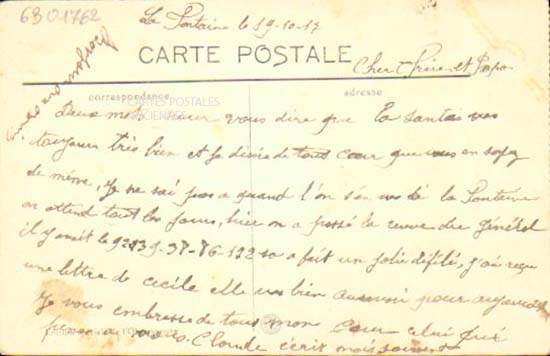 6301762
La Fontaine le 19-10-17
CARTE POSTALE
Cher frère et Papa
correspondance
adresse
CARTES POSTALES
ANCIENNES
Deux mots pour vous dire que la santée vas
toujour très bien et je désire de tout cour que vous en soyez
de même, Je ne sai pas a quand l'on s'en vas de la Fontaine
on attend tout les jours, hier on a passé la revue du général
il y avait le 9 2 13 9-37-86-112 sa a fait un jolie défilé, j'ai reçu
une lettre de cecile elle vas bien aurevoir pour aujourd
Je vous embrasse de tous mon cour celui qui
pense a vous. Claude écris moi souvent